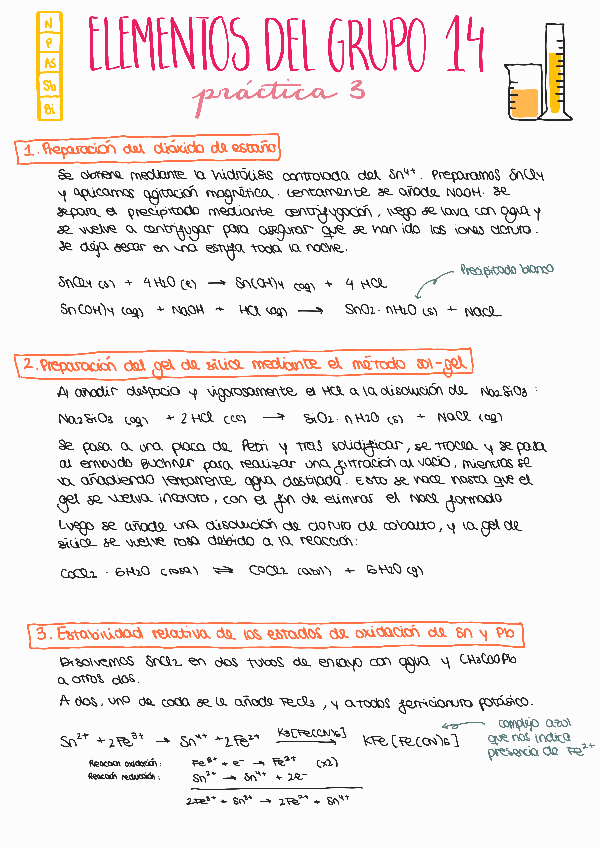 N
P
As
Sb
Bi
ELEMENTOS DEL GRUPO 14
práctica 3
1. Preparación del dióxido de estaño
Se obtiene mediante la hidrólisis controlada del Sn⁴⁺. Preparamos SnCl4
y aplicamos agitación magnética. Lentamente se añade NaOH. Se
separa el precipitado mediante centrifugación, luego se lava con agua y
se vuelve a centrifugar para asegurar que se han ido los iones cloruro.
Se deja secar en una estufa toda la noche.
Precipitado blanco
SnCl4 (s) + 4H2O (l) → Sn(OH)4 (aq) + 4 HCl
Sn(OH)4 (aq) + NaOH + HCl (aq) → SnO2·nH2O (s) + NaCl
2. Preparación del gel de sílice mediante el método sol-gel
Al añadir despacio y vigorosamente el HCl a la disolución de Na2SiO3:
Na2SiO3 (aq) + 2HCl (cc) → SiO2·nH2O (s) + NaCl (aq)
Se pasa a una placa de Petri y tras solidificar, se trocea y se pasa
al embudo Buchner para realizar una filtración al vacío, mientras se
va añadiendo lentamente agua destilada. Esto se hace hasta que el
gel se vuelva incoloro, con el fin de eliminar el NaCl formado.
Luego se añade una disolución de cloruro de cobalto, y la gel de
sílice se vuelve rosa debido a la reacción:
CoCl2 · 6H2O (rosa) ⇌ CoCl2 (azul) + 6H2O (g)
3. Estabilidad relativa de los estados de oxidación de Sn y Pb
Disolvemos SnCl2 en dos tubos de ensayo con agua y CH3COOPb
a otros dos.
A dos, uno de cada se le añade FeCl3, y a todos ferricianuro potásico.
Sn²⁺ + 2Fe³⁺ → Sn⁴⁺ + 2Fe²⁺ K3[Fe(CN)6] → KFe[Fe(CN)6]
complejo azul
que nos indica
presencia de Fe²⁺
Reacción oxidación: Fe³⁺ + e⁻ → Fe²⁺ (x2)
Reacción reducción: Sn²⁺ → Sn⁴⁺ + 2e⁻
2Fe³⁺ + Sn²⁺ → 2Fe²⁺ + Sn⁴⁺